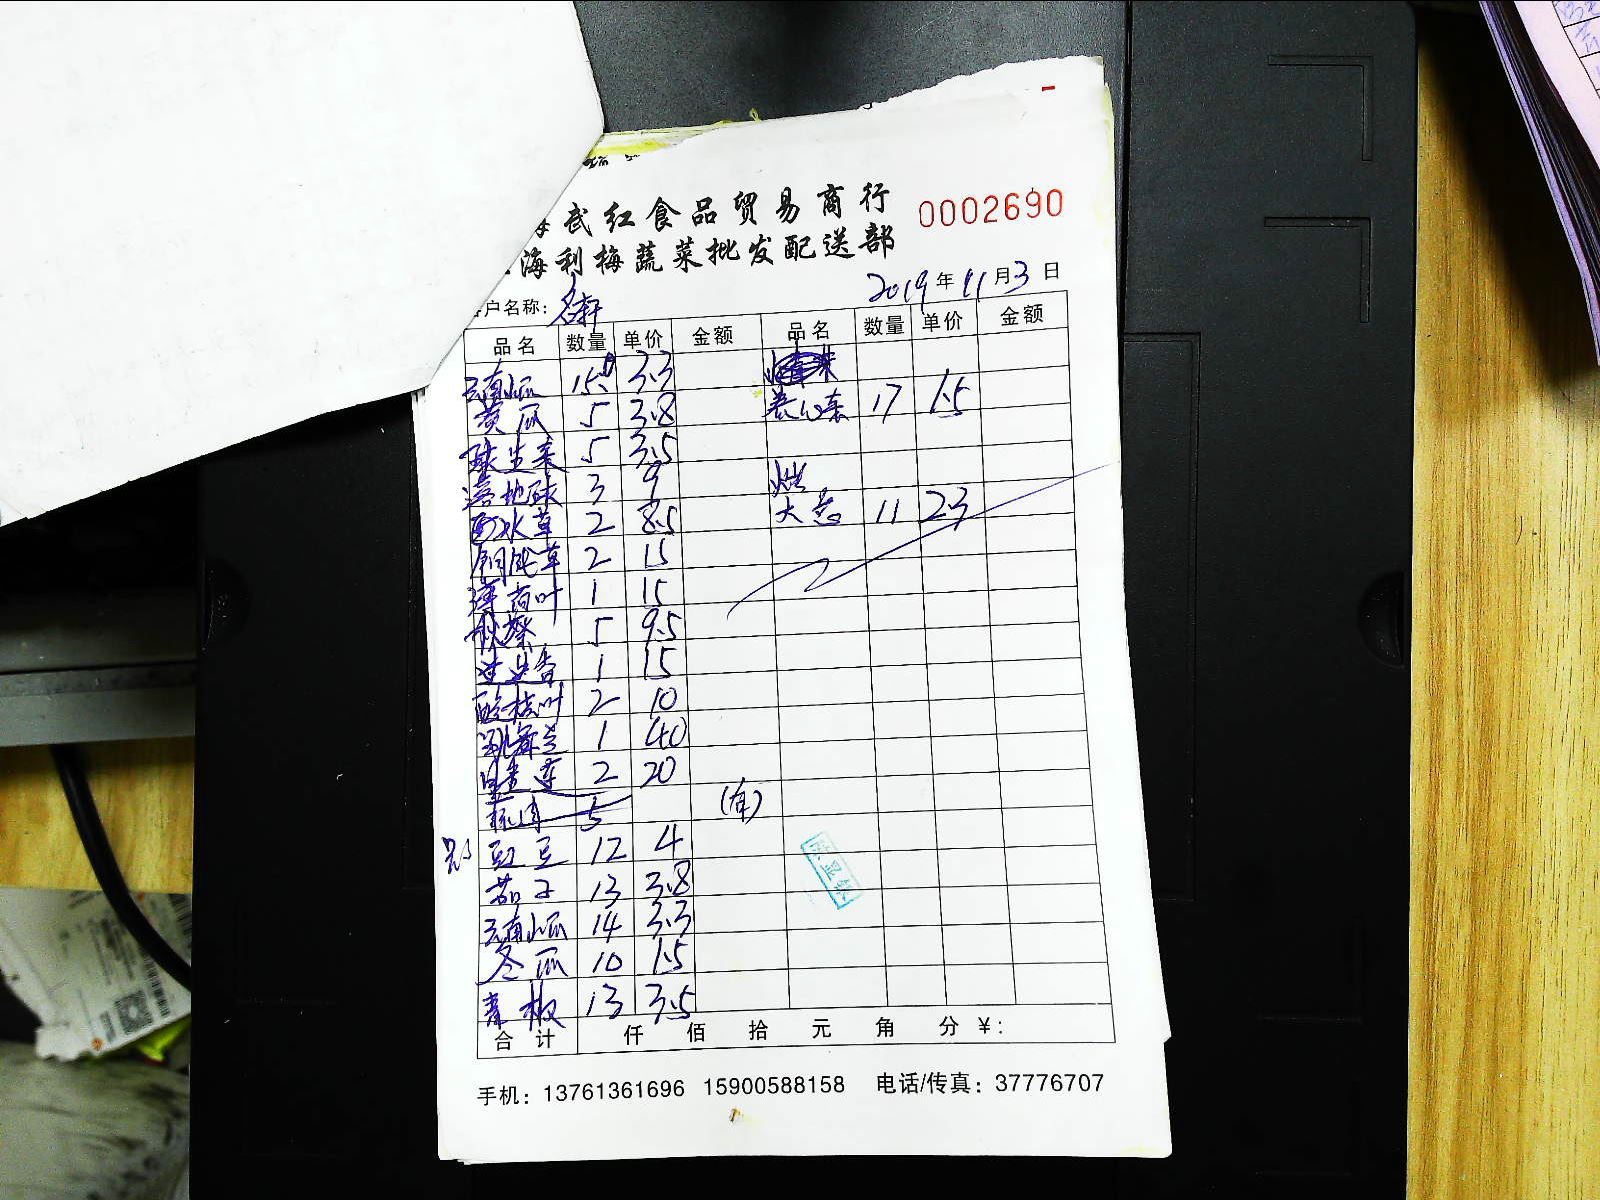 武红食品贸易商行
0002690
海利梅蔬菜批发配送部
户名称:
2019年11月3日
品名 数量 单价 金额 品名 数量 单价 金额
云南小瓜 15 3.3
黄瓜 5 3.8 卷心菜 17 1.5
球生菜 5 3.5
落地球 3 9
香水草 2 8.5 大葱 11 2.3
2 15
薄荷叶 1 15
秋葵 5 9.5
迷迭香 1 15
酸枝叶 2 10
1 40
2 20
5 (有)
豇豆 12 4
茄子 13 3.8
云南小瓜 14 3.3
冬瓜 10 1.5
青椒 13 3.5
合计 仟 佰 拾 元 角 分 ¥:
手机: 13761361696 15900588158 电话/传真: 37776707